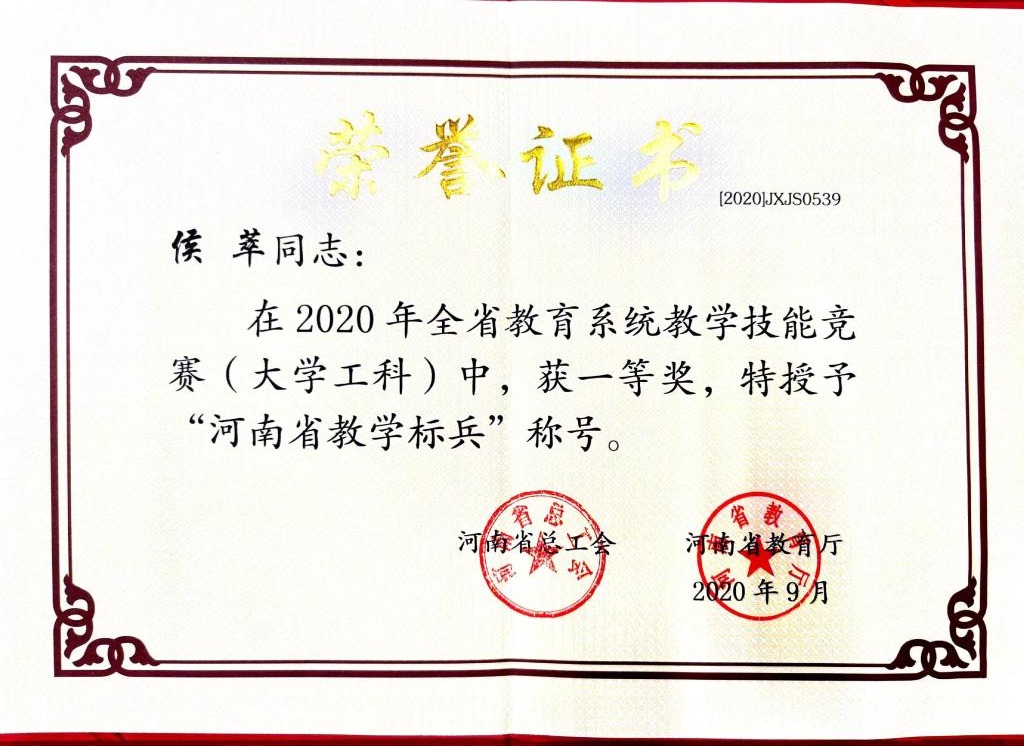 荣誉证书
[2020]JXJS0539
侯 萃同志：
在2020年全省教育系统教学技能竞
赛（大学工科）中，获一等奖，特授予
“河南省教学标兵”称号。
河南省总工会 河南省教育厅
2020年9月
河南省总工会
河南省教育厅